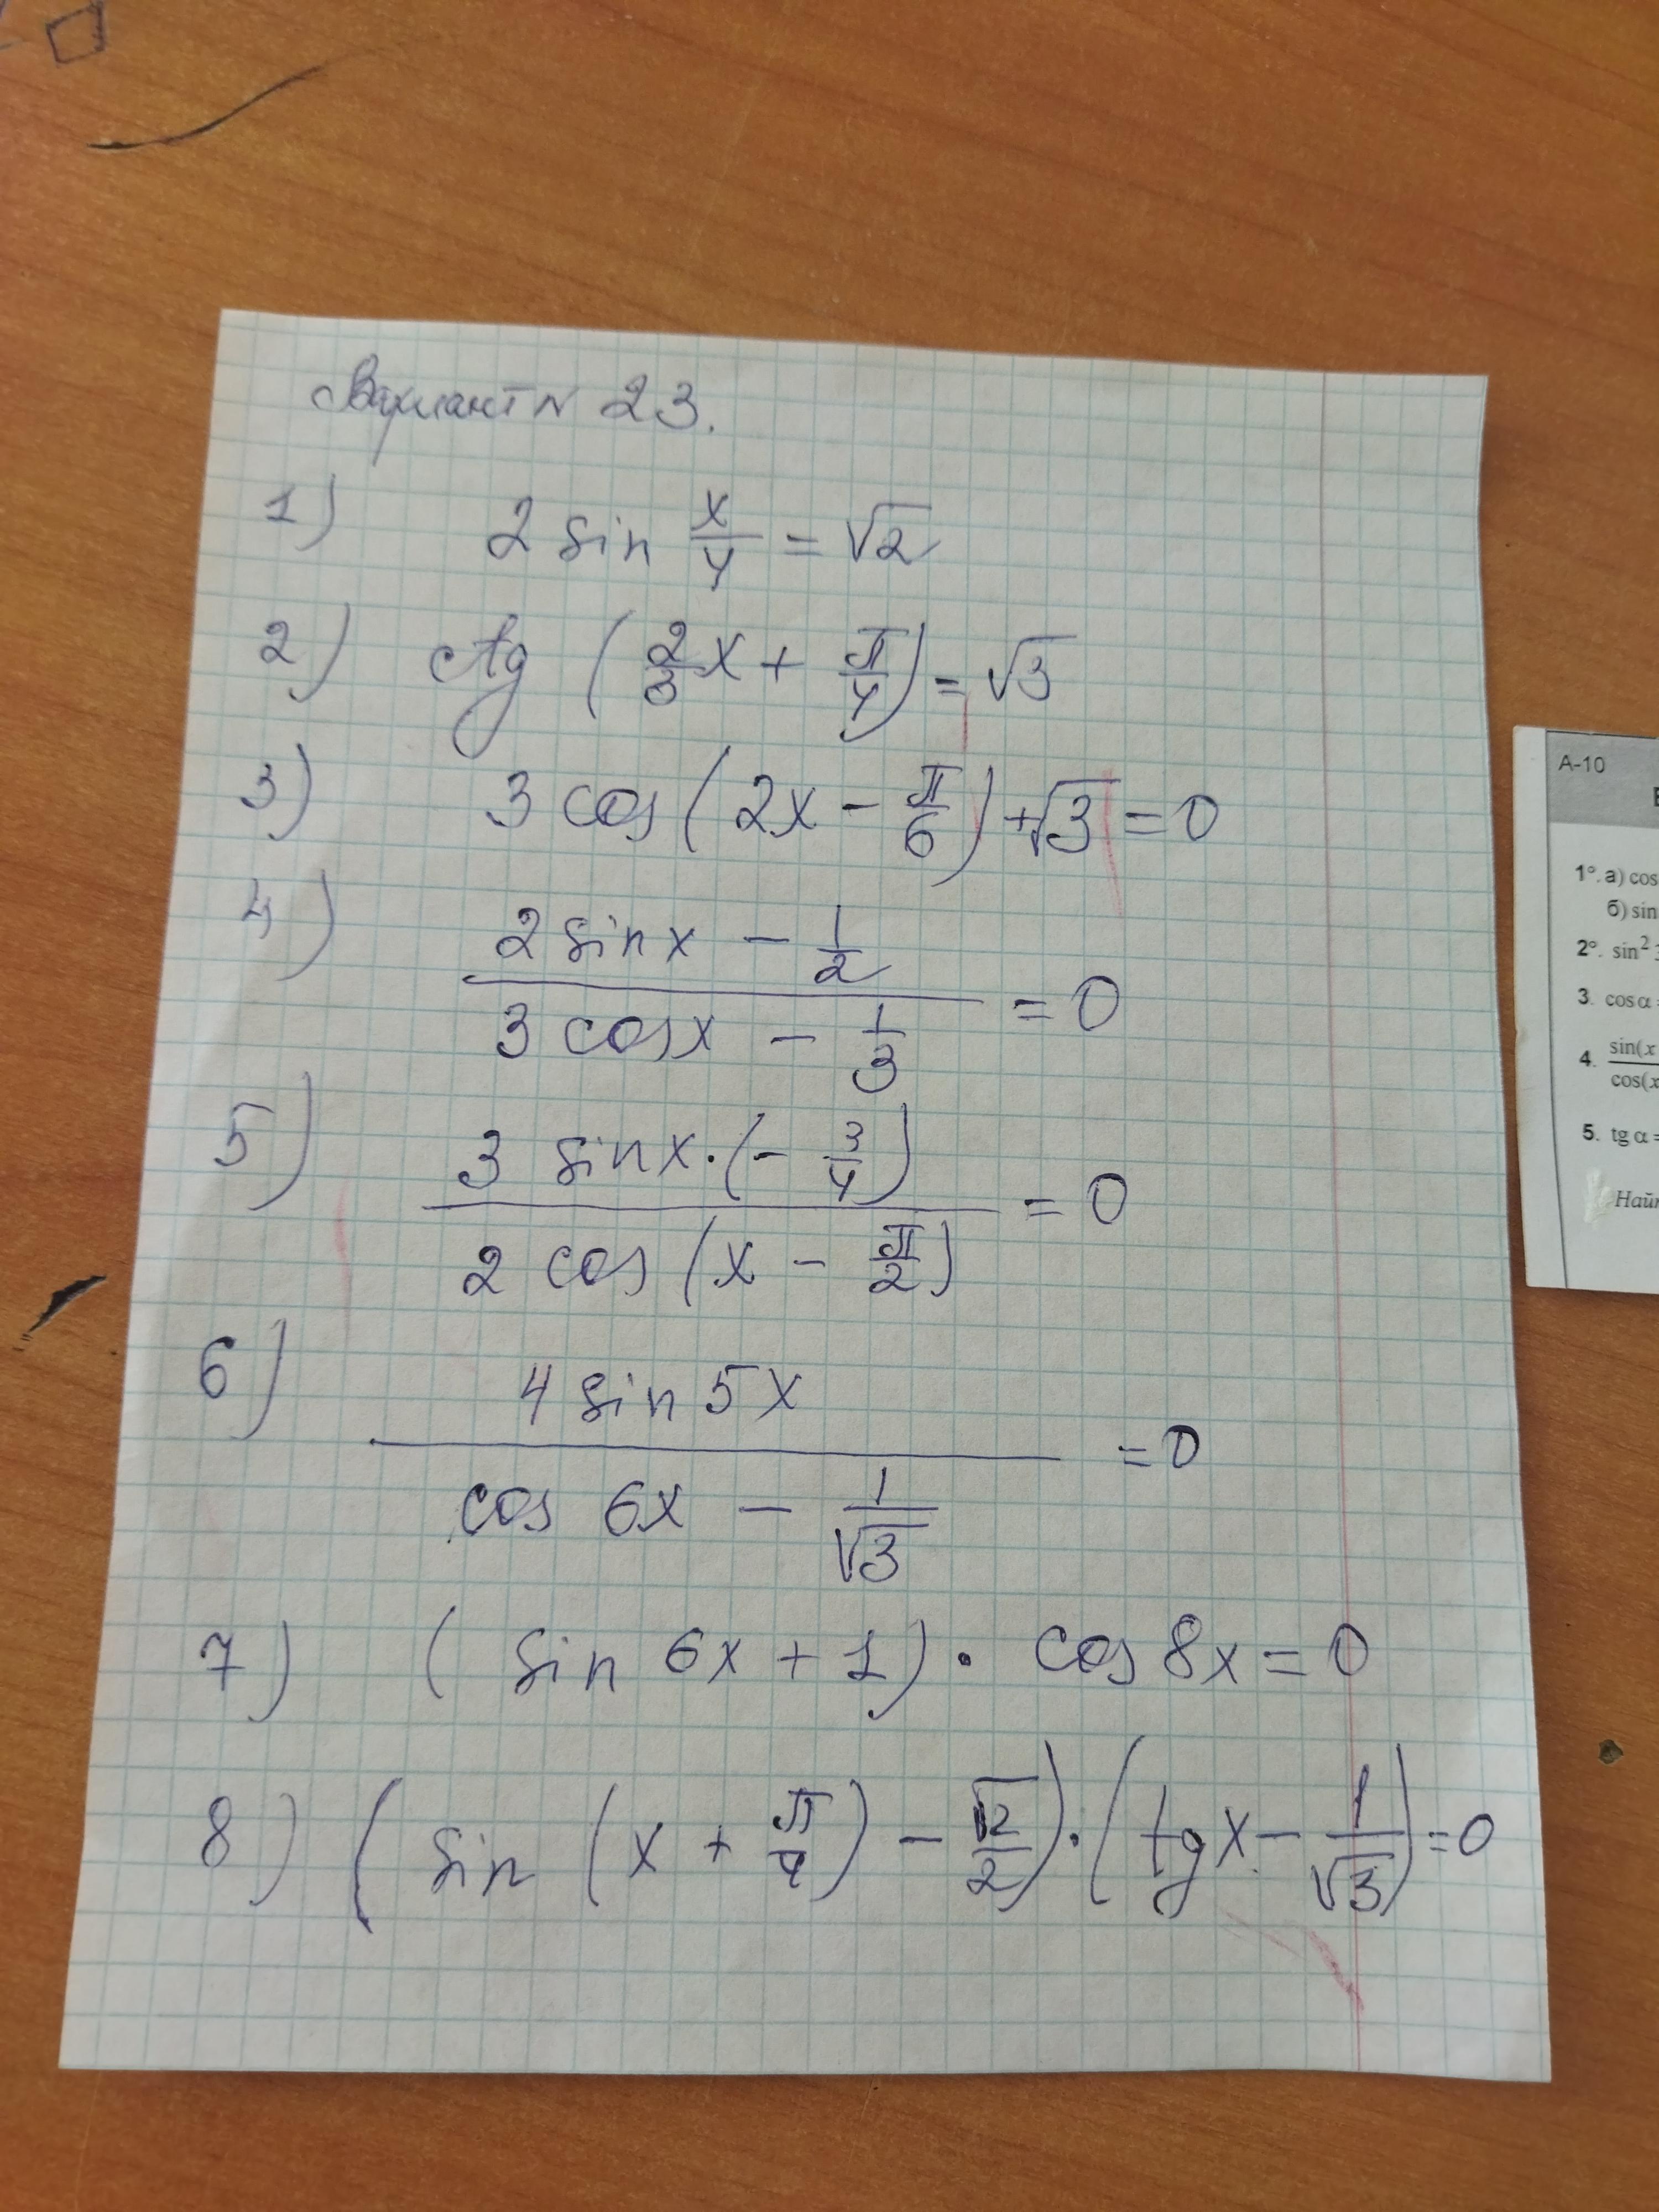 Вариант N 23.
1) 2 sin x/4 = √2
2) ctg (2/3 x + π/4) = √3
3) 3 cos (2x - π/6) + √3 = 0
4) (2 sin x - 1/2)/(3 cos x - 1/3) = 0
5) (3 sin x · (- 3/4))/(2 cos (x - π/2)) = 0
6) (4 sin 5x)/(cos 6x - 1/√3) = 0
7) (sin 6x + 1) · cos 8x = 0
8) (sin (x + π/4) - √2/2) · (tg x - 1/√3) = 0
А-10
1°. а) cos
б) sin
2°. sin²
3. cos α
4. sin(x
cos(x
5. tg α =